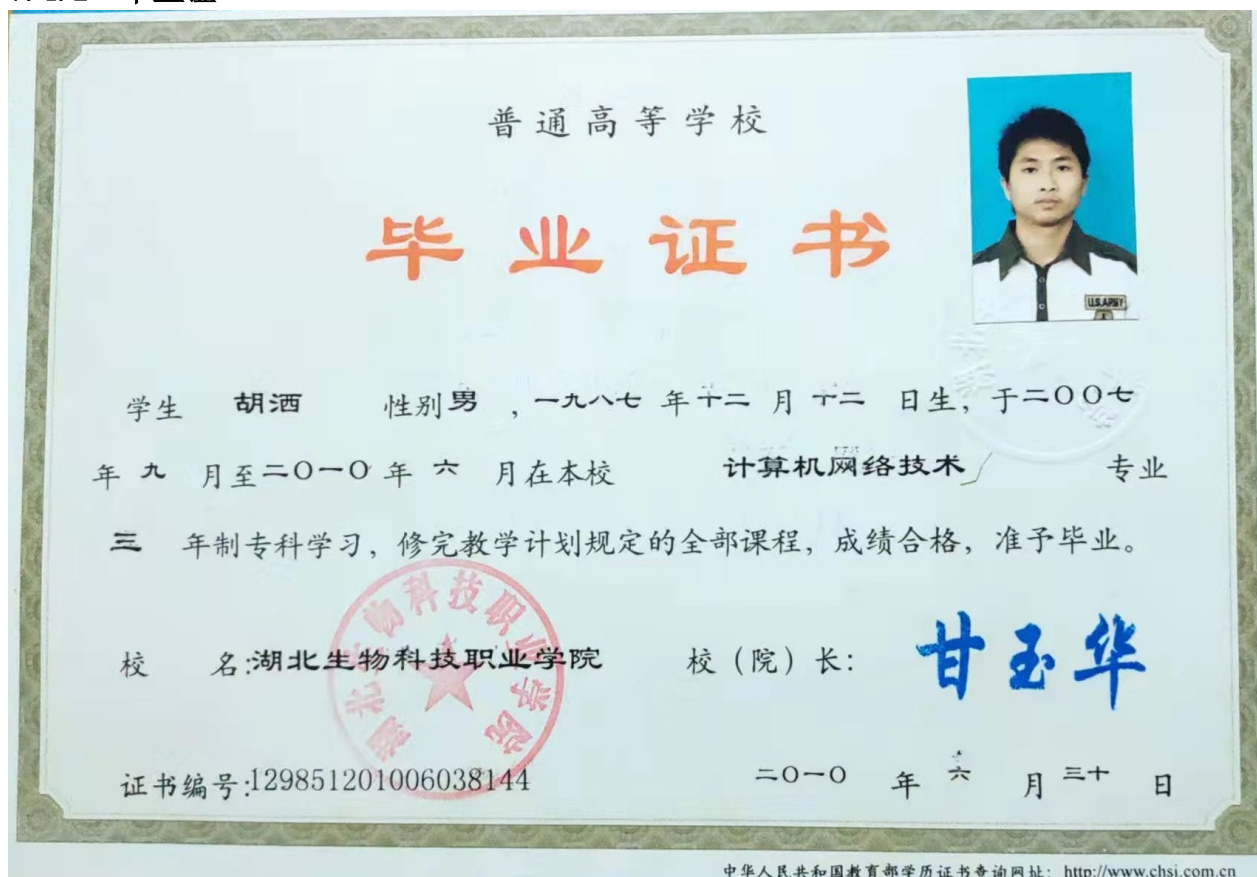 普通高等学校
毕业证书
U.S.ARMY
学生 胡洒 性别男，一九八七年十二月十二日生，于二〇〇七
年九月至二〇一〇年六月在本校 计算机网络技术 专业
三年制专科学习，修完教学计划规定的全部课程，成绩合格，准予毕业。
校 名:湖北生物科技职业学院 校（院）长： 甘玉华
湖北生物科技职业学院
证书编号:129851201006038144 二〇一〇年六月三十日
中华人民共和国教育部学历证书查询网址：http://www.chsi.com.cn